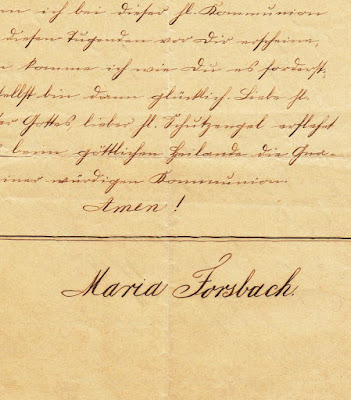 n ich bei dieser hl. Kommunion
diesen Tugenden vor Dir erscheine,
n komme ich wie Du es forderst,
selbst bin dann glücklich. Liebe hl.
er Gottes lieber hl. Schutzengel erflehet
beim göttlichen Heilande die Gna-
einer würdigen Kommunion.
Amen!
Maria Forsbach.